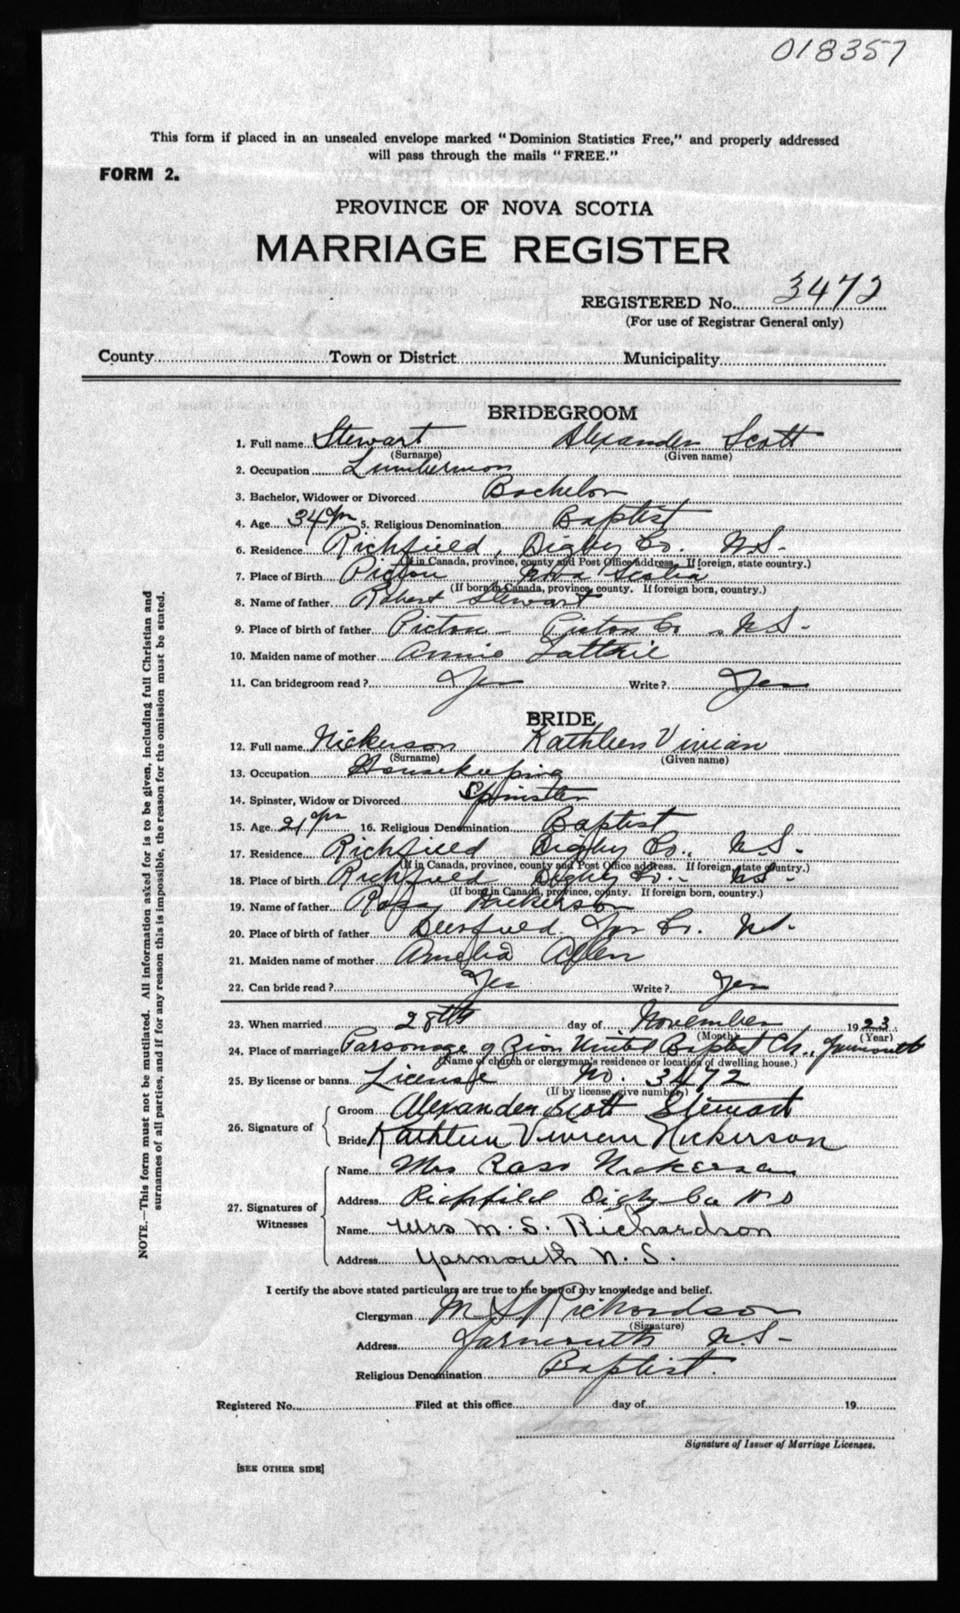 018357
This form if placed in an unsealed envelope marked "Dominion Statistics Free," and properly addressed
will pass through the mails "FREE."
FORM 2.
PROVINCE OF NOVA SCOTIA
MARRIAGE REGISTER
REGISTERED No. 3472
(For use of Registrar General only)
County Town or District Municipality
BRIDEGROOM
1. Full name Stewart Alexander Scott
(Surname) (Given name)
2. Occupation Lumberman
3. Bachelor, Widower or Divorced Bachelor
4. Age 34 yrs 5. Religious Denomination Baptist
6. Residence Richfield, Digby Co. N.S.
(If in Canada, province, county and Post Office address. If foreign, state country.)
7. Place of Birth Pictou Nova Scotia
(If born in Canada, province, county. If foreign born, country.)
8. Name of father Robert Stewart
9. Place of birth of father Pictou Pictou Co. N.S.
10. Maiden name of mother Annie
11. Can bridegroom read? Yes Write? Yes
BRIDE
12. Full name Nickerson Kathleen Vivian
(Surname) (Given name)
13. Occupation Housekeeping
14. Spinster, Widow or Divorced Spinster
15. Age 21 yrs 16. Religious Denomination Baptist
17. Residence Richfield Digby Co., N.S.
(If in Canada, province, county and Post Office address. If foreign, state country.)
18. Place of birth Richfield Digby Co. N.S.
(If born in Canada, province, county. If foreign born, country.)
19. Name of father Ross Nickerson
20. Place of birth of father Deerfield Yar Co. N.S.
21. Maiden name of mother Amelia Allen
22. Can bride read? Yes Write? Yes
23. When married 28th day of November 1923
(Month) (Year)
24. Place of marriage Parsonage of Zion United Baptist Ch., Yarmouth
(Name of church or clergyman's residence or location of dwelling house.)
25. By license or banns License No. 3472
(If by license, give number)
26. Signature of
Groom Alexander Scott Stewart
Bride Kathleen Vivian Nickerson
27. Signatures of Witnesses
Name Mrs Ross Nickerson
Address Richfield Digby Co N.S
Name Mrs M. S. Richardson
Address Yarmouth N. S.
I certify the above stated particulars are true to the best of my knowledge and belief.
Clergyman M S Richardson
(Signature)
Address Yarmouth N.S.
Religious Denomination Baptist.
Registered No. Filed at this office day of 19
Signature of Issuer of Marriage Licenses.
[SEE OTHER SIDE]
NOTE.—This form must not be mutilated. All information asked for is to be given, including full Christian and
surnames of all parties, and if for any reason this is impossible, the reason for the omission must be stated.